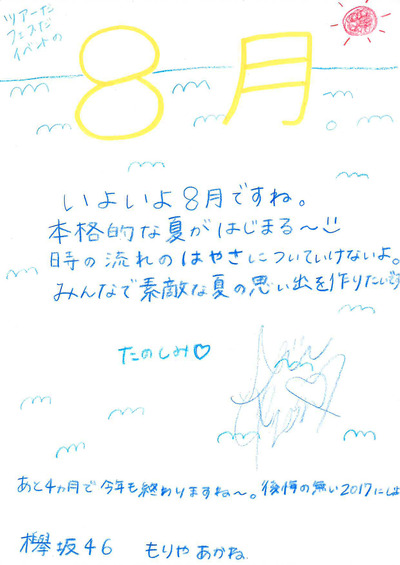 ツアーだ
フェスだ
イベントの
8月。
いよいよ8月ですね。
本格的な夏がはじまる〜
時の流れのはやさについていけないよ。
みんなで素敵な夏の思い出を作りたい
たのしみ♡
あと4ヵ月で今年も終わりますね〜。後悔の無い2017にし
欅坂46 もりやあかね